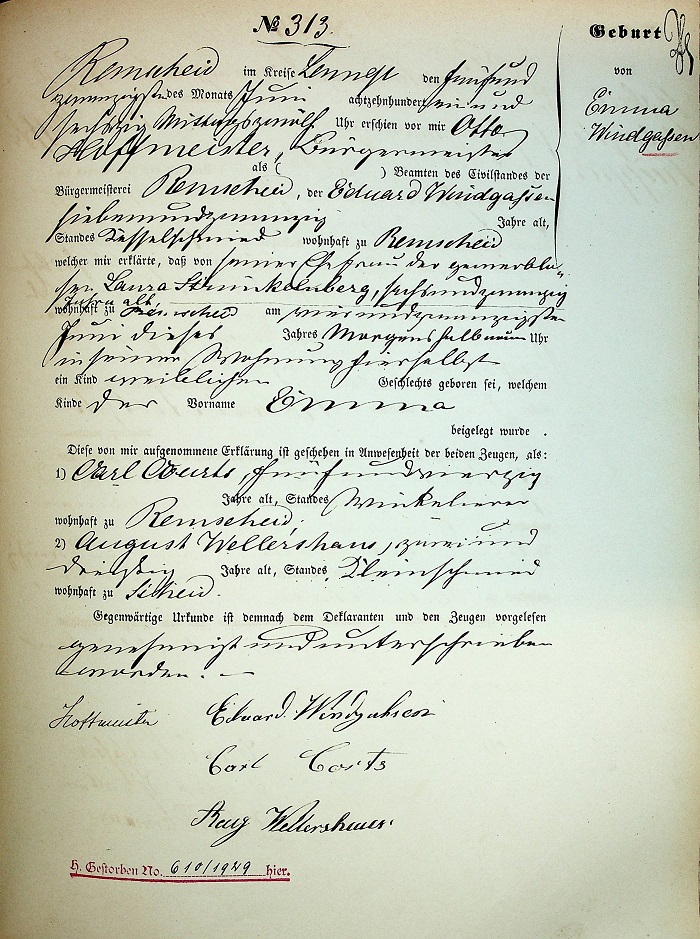 № 313.
Geburt
von
Emma
Windgassen
Remscheid im Kreise Lennep den fünfund
zwanzigsten des Monats Juni achtzehnhundert ein und
sechzig Mittags zwölf Uhr erschien vor mir Otto
Hoffmeister, Bürgermeister
als ( ) Beamten des Civilstandes der
Bürgermeisterei Remscheid, der Eduard Windgassen
siebenundzwanzig Jahre alt,
Standes Kesselschmied wohnhaft zu Remscheid
welcher mir erklärte, daß von seiner Ehefrau der gewerblo-
sen Laura, sechsundzwanzig
Jahre alt,
wohnhaft zu Remscheid am vierundzwanzigsten
Juni dieses Jahres Morgens halb neun Uhr
in seiner Wohnung hierselbst
ein Kind weiblichen Geschlechts geboren sei, welchem
Kinde der Vorname Emma
beigelegt wurde .
Diese von mir aufgenommene Erklärung ist geschehen in Anwesenheit der beiden Zeugen, als:
1) Carl Courts, fünfundvierzig
Jahre alt, Standes Winkelierer
wohnhaft zu Remscheid;
2) August Wellershaus, zwei und
dreißig Jahre alt, Standes Kleinschmied
wohnhaft zu
Gegenwärtige Urkunde ist demnach dem Deklaranten und den Zeugen vorgelesen
genehmigt und unterschrieben
worden. —
Hoffmeister Eduard Windgassen
Carl Corts
Aug Wellershaus
H. Gestorben No. 610/1929 hier.